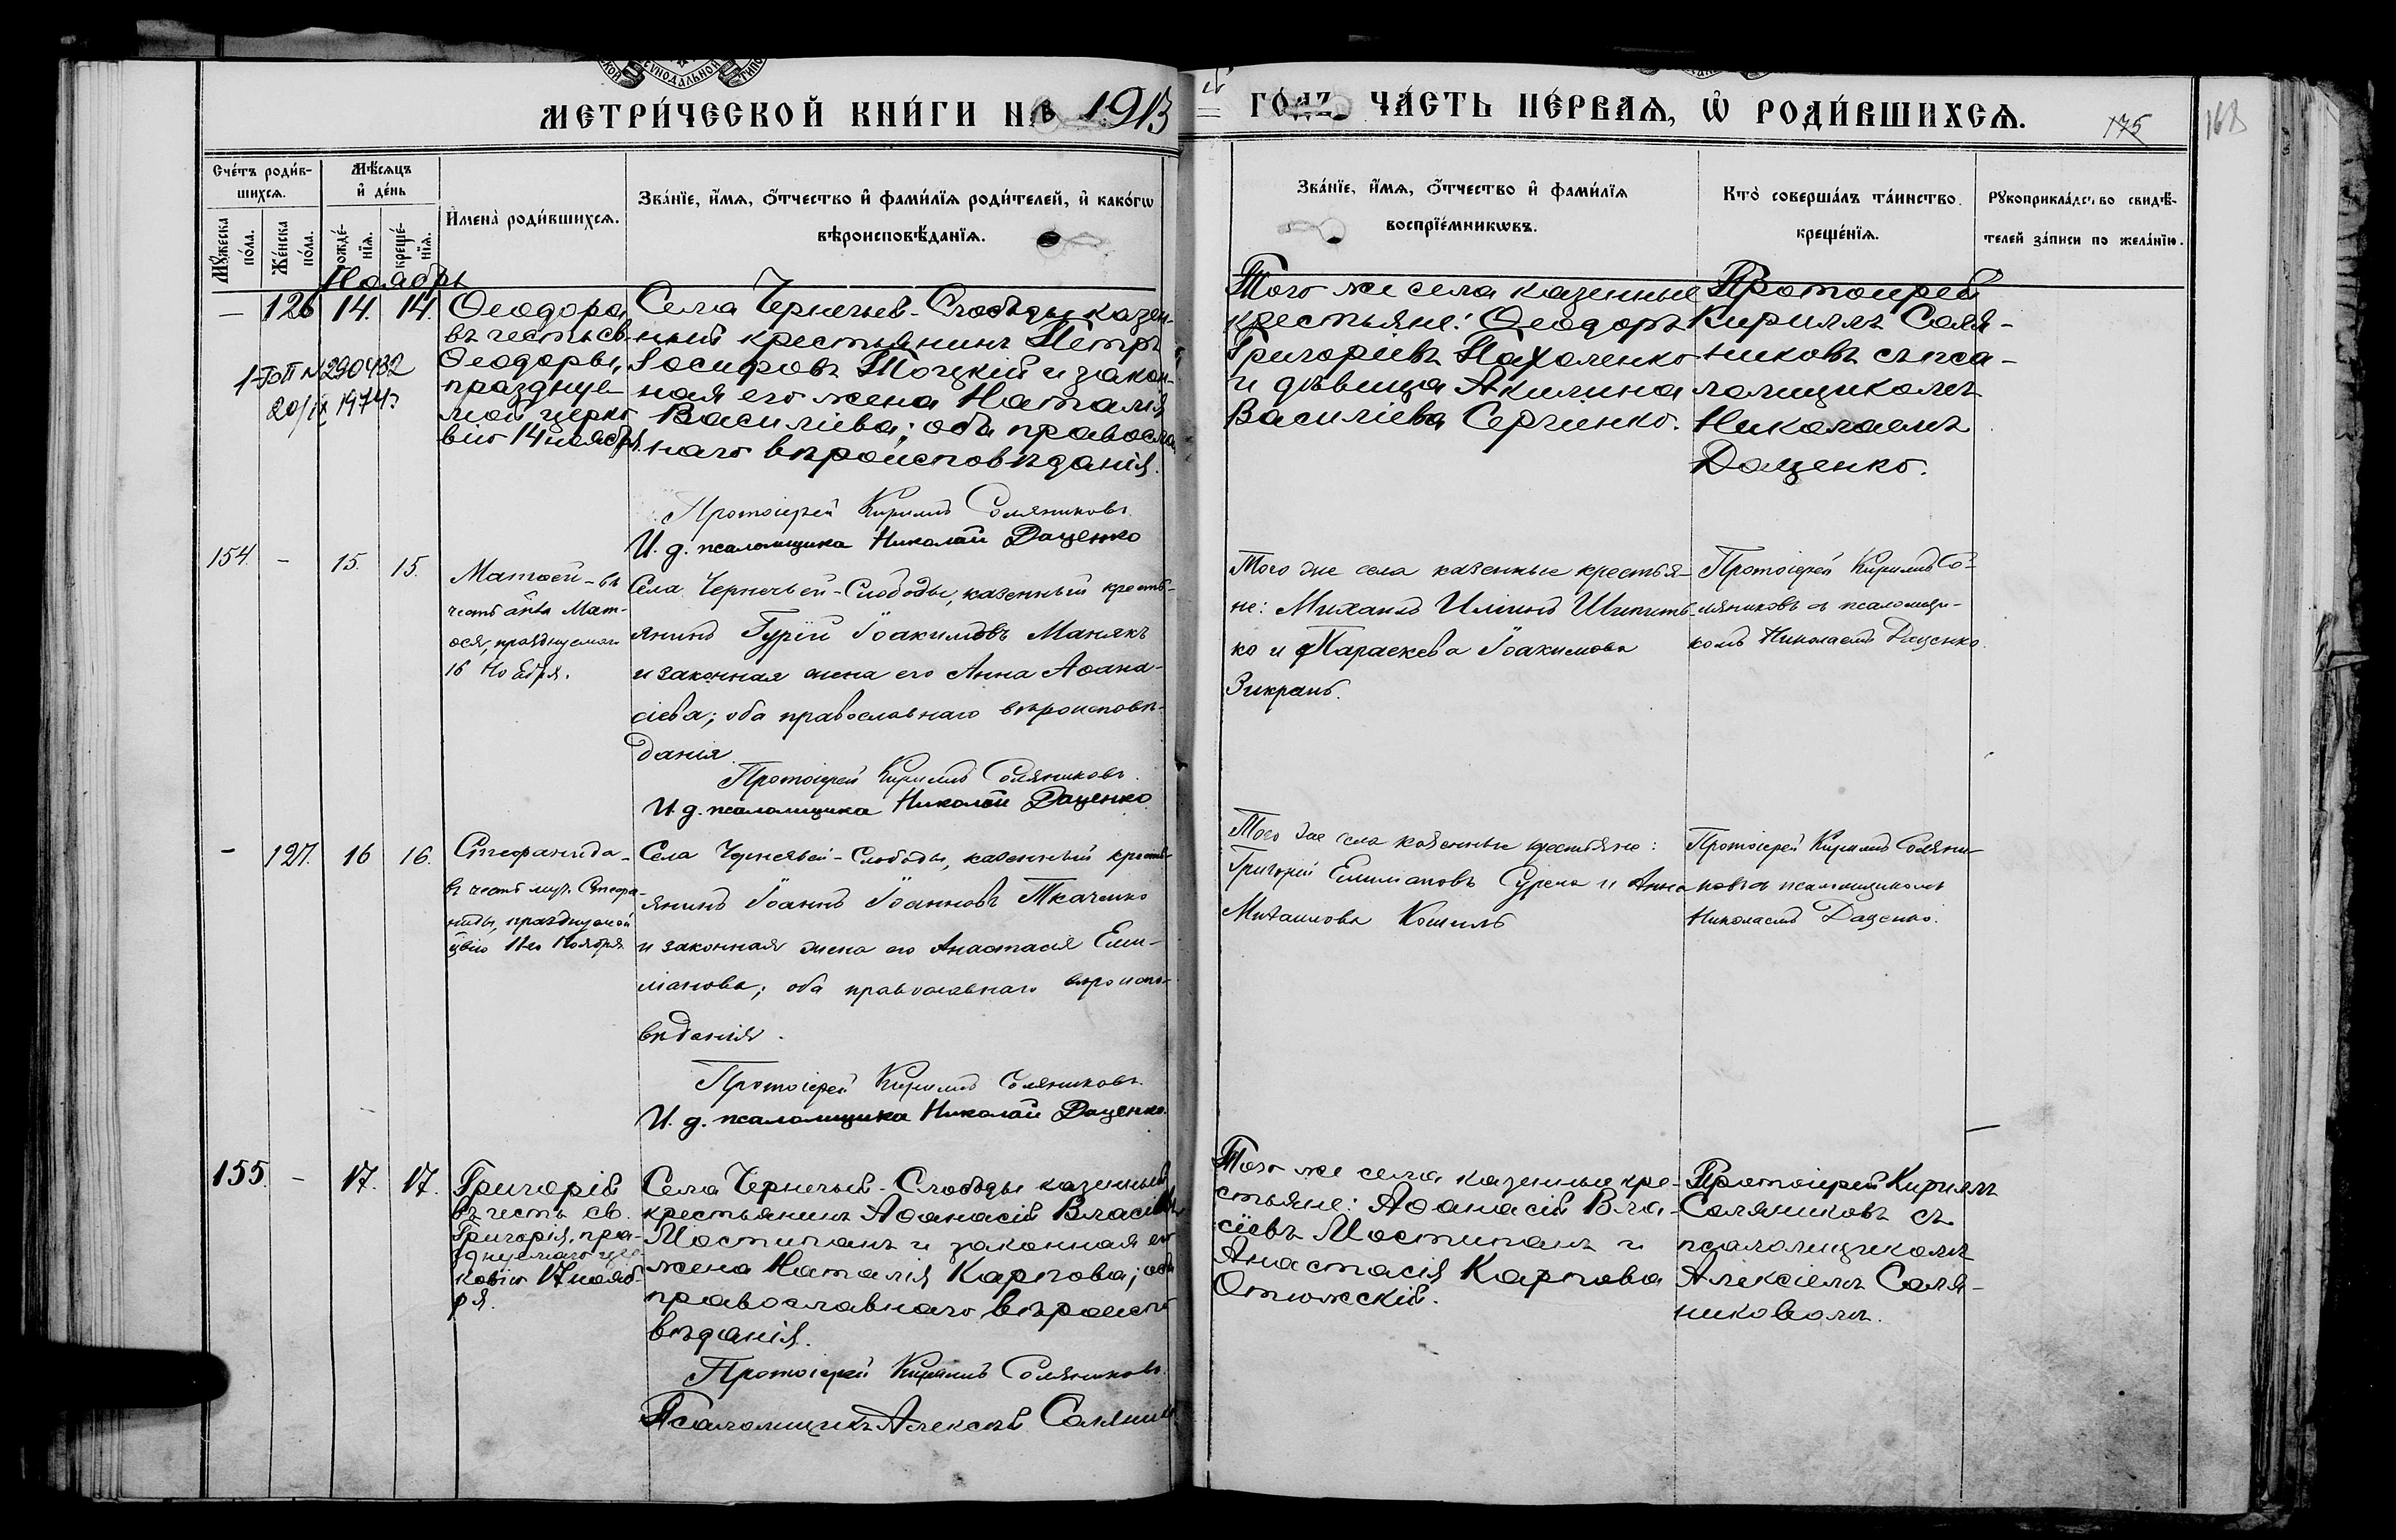 МЕТРИ́ЧЕСКОЙ КНИ́ГИ НА 1913
ГО́ДЪ ЧА́СТЬ ПЕ́РВАЯ, Ѡ҆ РОДИ́ВШИХСЯ.
175
168
Сче́тъ роди́в-
шихся.
Мѣ́сяцъ
и҆ де́нь
Мꙋ́жеска
по́ла.
Же́нска
по́ла.
рожде́-
нїя.
креще́-
нїя.
И҆мена̀ роди́вшихся.
Зва́нїе, и҆́мя, ѻ҆́тчество и҆ фами́лїя роди́телей, и҆ како́гѡ
вѣроисповѣ́данїя.
Зва́нїе, и҆́мя, ѻ҆́тчество и҆ фами́лїя
воспрїе́мникѡвъ.
Кто̀ соверша́лъ та́инство
креще́нїя.
Рꙋкоприкла́дство свидѣ́-
телей за́писи по жела́нїю.
Ноябрь
— 126 14. 14.
1-ЮП №290432
20/IX 1974г
Ѳеодора
въ честь св.
Ѳеодоры,
праздνуе-
мой церко
вію 14 ноября
Села Чернечьей-Слободы казен-
ный крестьянинъ Петръ
Іосифовъ Тоцкій и закон-
ная его жена Наталія
Василіева; оба православ
наго вѣроисповѣданія.
Протоіерей Кириллъ Соляниковъ
И. д. псаломщика Николай Даценко
Того же села казенные
крестьяне: Ѳеодоръ
Григоріевъ Пахоленко
и дѣвица Акилина
Василіева Сергіенко.
Протоіерей
Кириллъ Соля-
никовъ съ пса-
ломщикомъ
Николаемъ
Даценко.
154. – 15. 15.
Матѳей – въ
честь ап҃ла Мат-
ѳея, празднуемаго
16 Ноября.
Села Чернечьей-Слободы, казенный кресть-
янинъ Гурій Іоакимовъ Манякъ
и законная жена его Анна Аѳана-
сіева; оба православнаго вѣроисповѣ-
данія.
Протоіерей Кириллъ Соляниковъ.
И. д. псаломщика Николай Даценко
Того же села казенные крестья-
не: Михаилъ Илiинъ Шипить-
ко и Параскева Іоакимова
Зикрань.
Протоіерей Кириллъ Со-
ляниковъ съ псаломщи-
комъ Николаемъ Даценко.
– 127. 16 16.
Стефанида –
въ честь муч. Стефа-
ниды, празднуемой
ц҃вію 11го Ноября
Села Чернечьей-Слободы, казенный кресть-
янинъ Іоаннъ Іоанновъ Ткаченко
и законная жена его Анастасія Еми-
ліанова; оба православнаго вѣроиспо-
вѣданія.
Протоіерей Кириллъ Соляниковъ.
И. д. псаломщика Николай Даценко.
Того же села казенные крестьяне:
Григорій Емиліановъ Сурема и Анна
Михаилова Кошель
Протоіерей Кириллъ Соляни-
ковъ съ псаломщикомъ
Николаемъ Даценко.
155. – 17. 17.
Григорій
въ честь св.
Григорія, пра-
зднуемаго цер-
ковію 17 нояб-
ря.
Села Чернечьей-Слободы казенный
крестьянинъ Аѳанасій Власіевъ
Мостипанъ и законная его
жена Наталія Карпова; оба
православнаго вѣроиспо
вѣданія.
Протоіерей Кириллъ Соляниковъ.
Псаломщикъ Алексѣй Соляник
Того же села казенные кре-
стьяне: Аѳанасій Вла-
сіевъ Мостипанъ и
Анастасія Карпова
Отюжскій.
Протоіерей Кириллъ
Соляниковъ съ
псаломщикомъ
Алексіемъ Соля-
никовомъ.